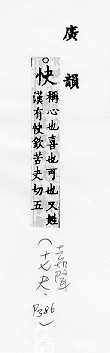 廣韻
快
稱心也喜也可也又姓
漢有快欽苦夬切五
(嘉隆
十七夬、
P386)